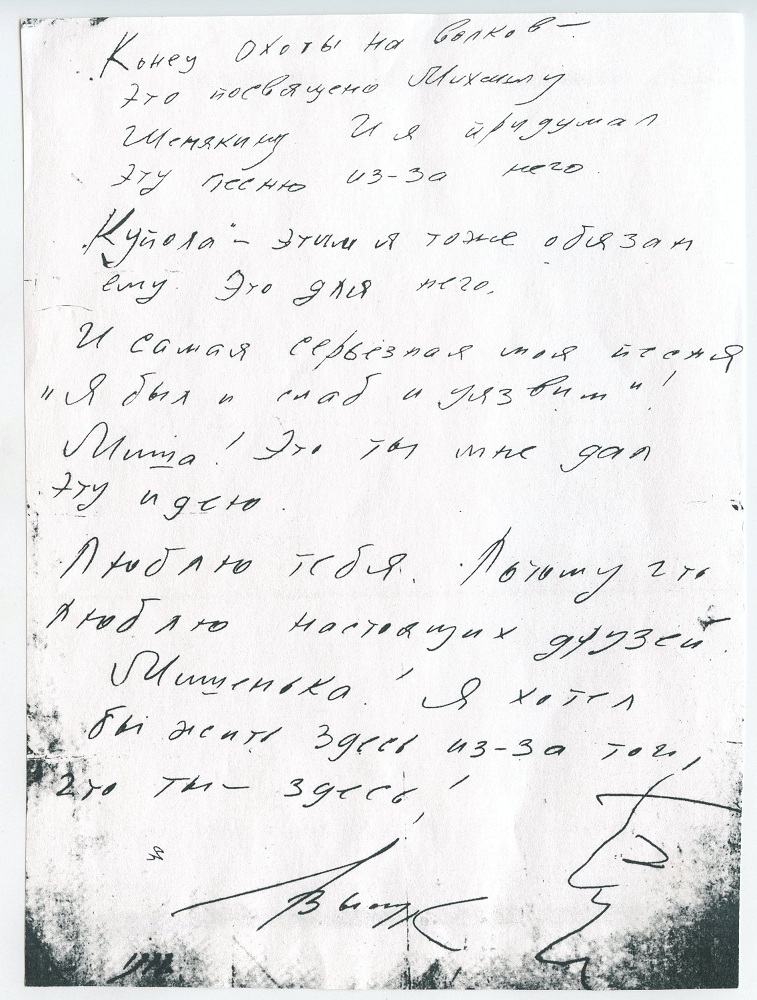 Конец охоты на волков –
это посвящено Михаилу
Шемякину И я придумал
эту песню из-за него.
„Купола" – этим я тоже обязан
ему. Это для него.
И самая серьёзная моя песня
"Я был и слаб и уязвим"!
Миша! Это ты мне дал
эту идею.
Люблю тебя. Потому что
люблю настоящих друзей.
Мишенька! Я хотел
бы жить здесь из-за того,
что ты – здесь!